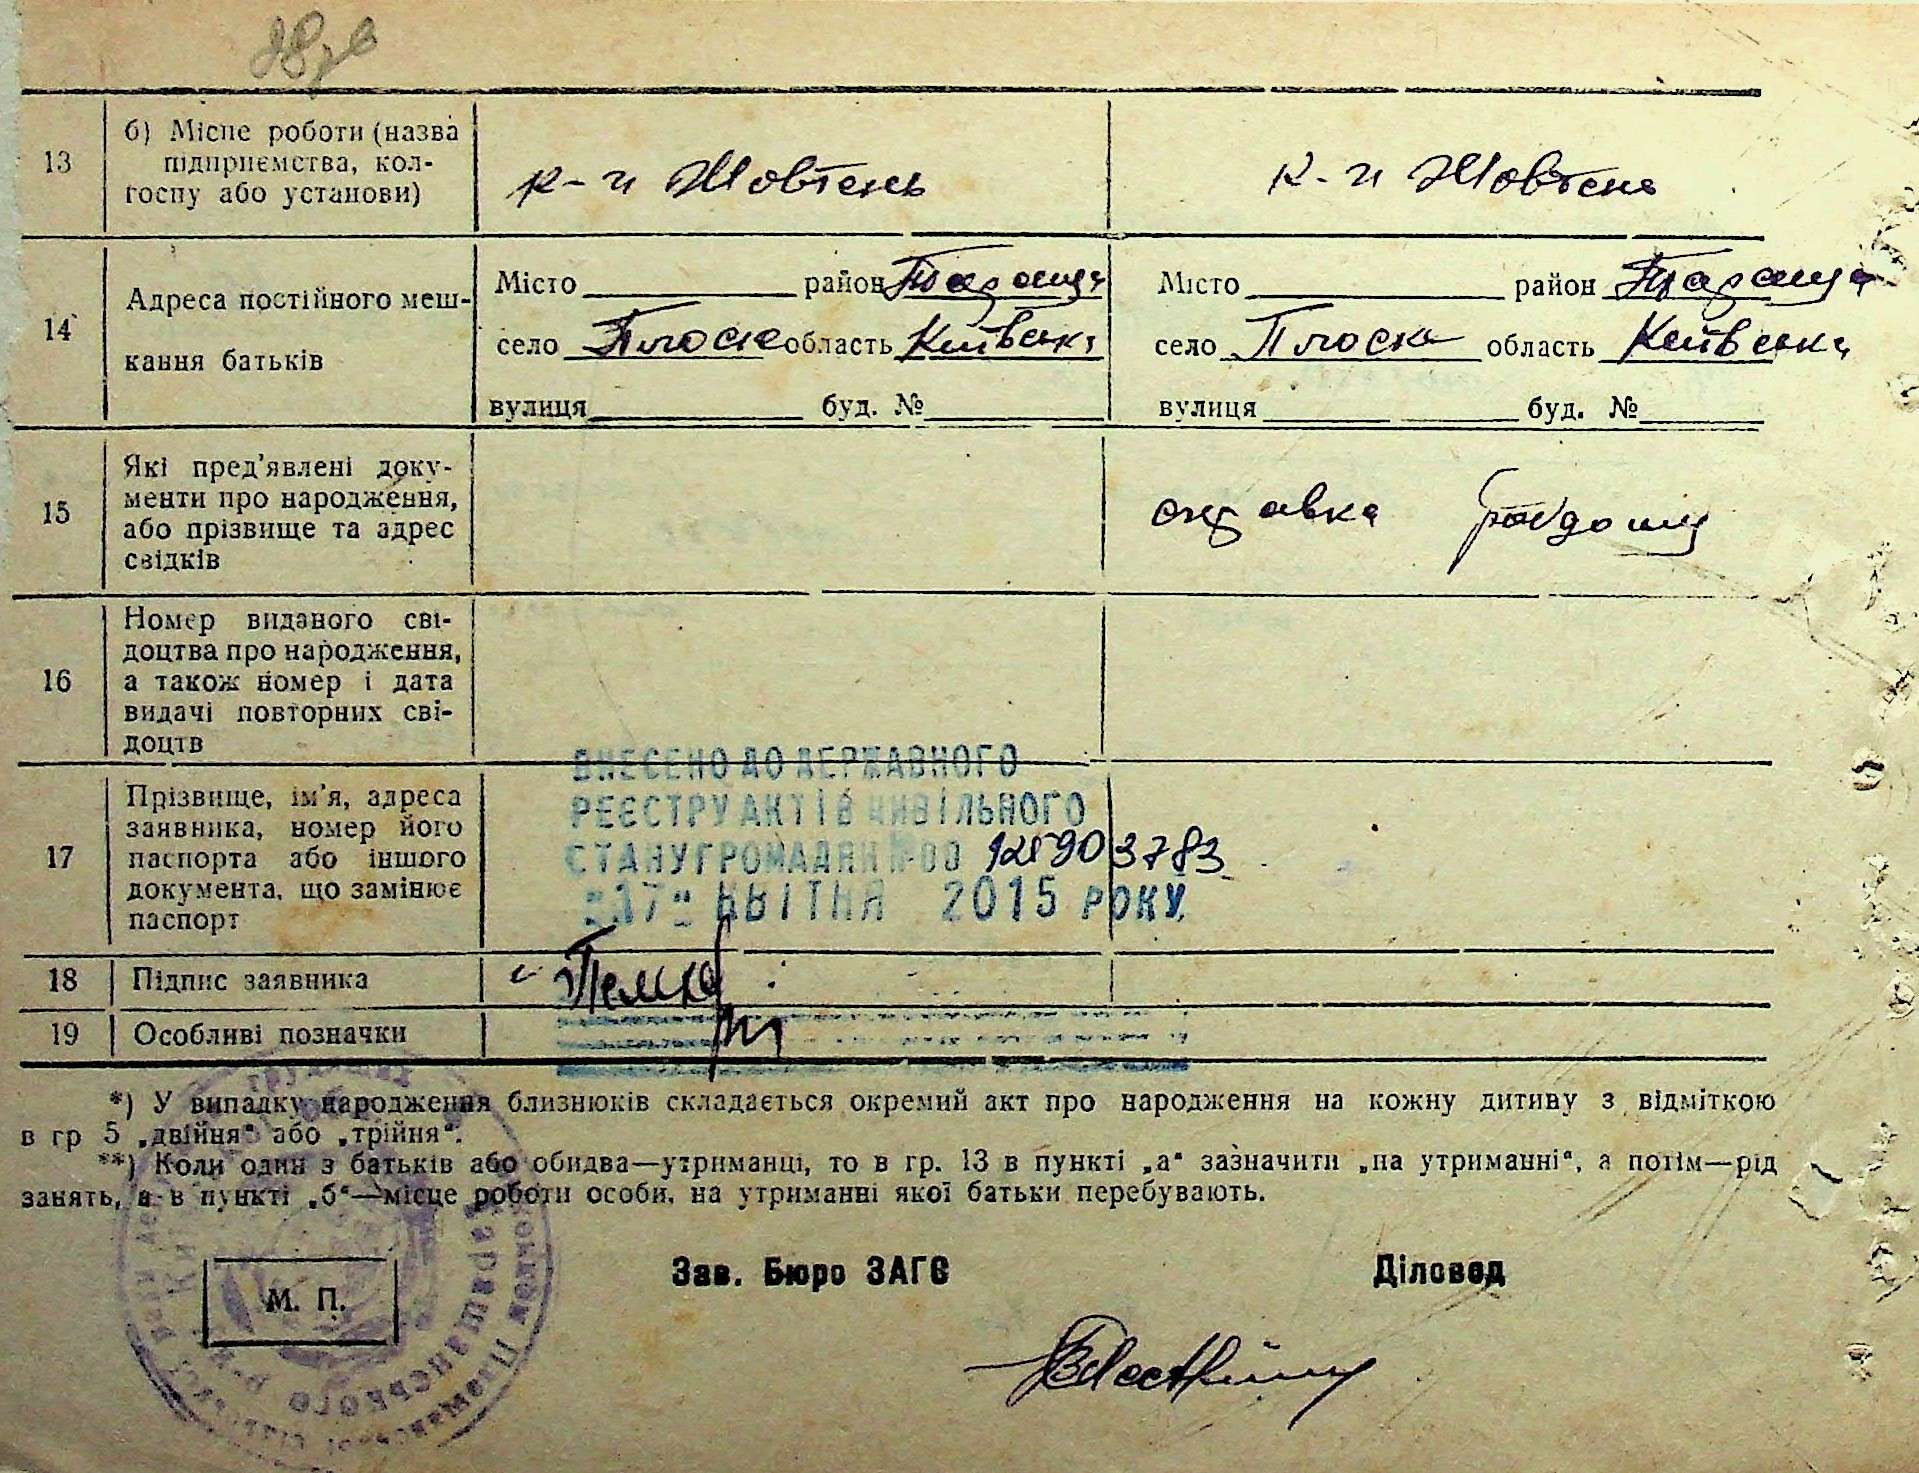 13
б) Місце роботи (назва
підприємства, кол-
госпу або установи)
к-п Жовтень
к-п Жовтень
14
Адреса постійного меш-
кання батьків
Місто район Тараща
село Плоска область Київська
вулиця буд. №
Місто район Тараща
село Плоска область Київська
вулиця буд. №
15
Які пред'явлені доку-
менти про народження,
або прізвище та адрес
свідків
справка
16
Номер виданого сві-
доцтва про народження,
а також номер і дата
видачі повторних сві-
доцтв
17
Прізвище, ім'я, адреса
заявника, номер його
паспорта або іншого
документа, що замінює
паспорт
ВНЕСЕНО ДО ДЕРЖАВНОГО
РЕЄСТРУ АКТІВ ЦИВІЛЬНОГО
СТАНУ ГРОМАДЯН
"17" КВІТНЯ 2015 РОКУ
18
Підпис заявника
19
Особливі позначки
*) У випадку народження близнюків складається окремий акт про народження на кожну дитину з відміткою
в гр 5 „двійня“ або „трійня“.
**) Коли один з батьків або обидва—утриманці, то в гр. 13 в пункті „а“ зазначити „на утриманні“, а потім—рід
занять, а в пункті „б“—місце роботи особи, на утриманні якої батьки перебувають.
М. П.
Зав. Бюро ЗАГС
Діловод